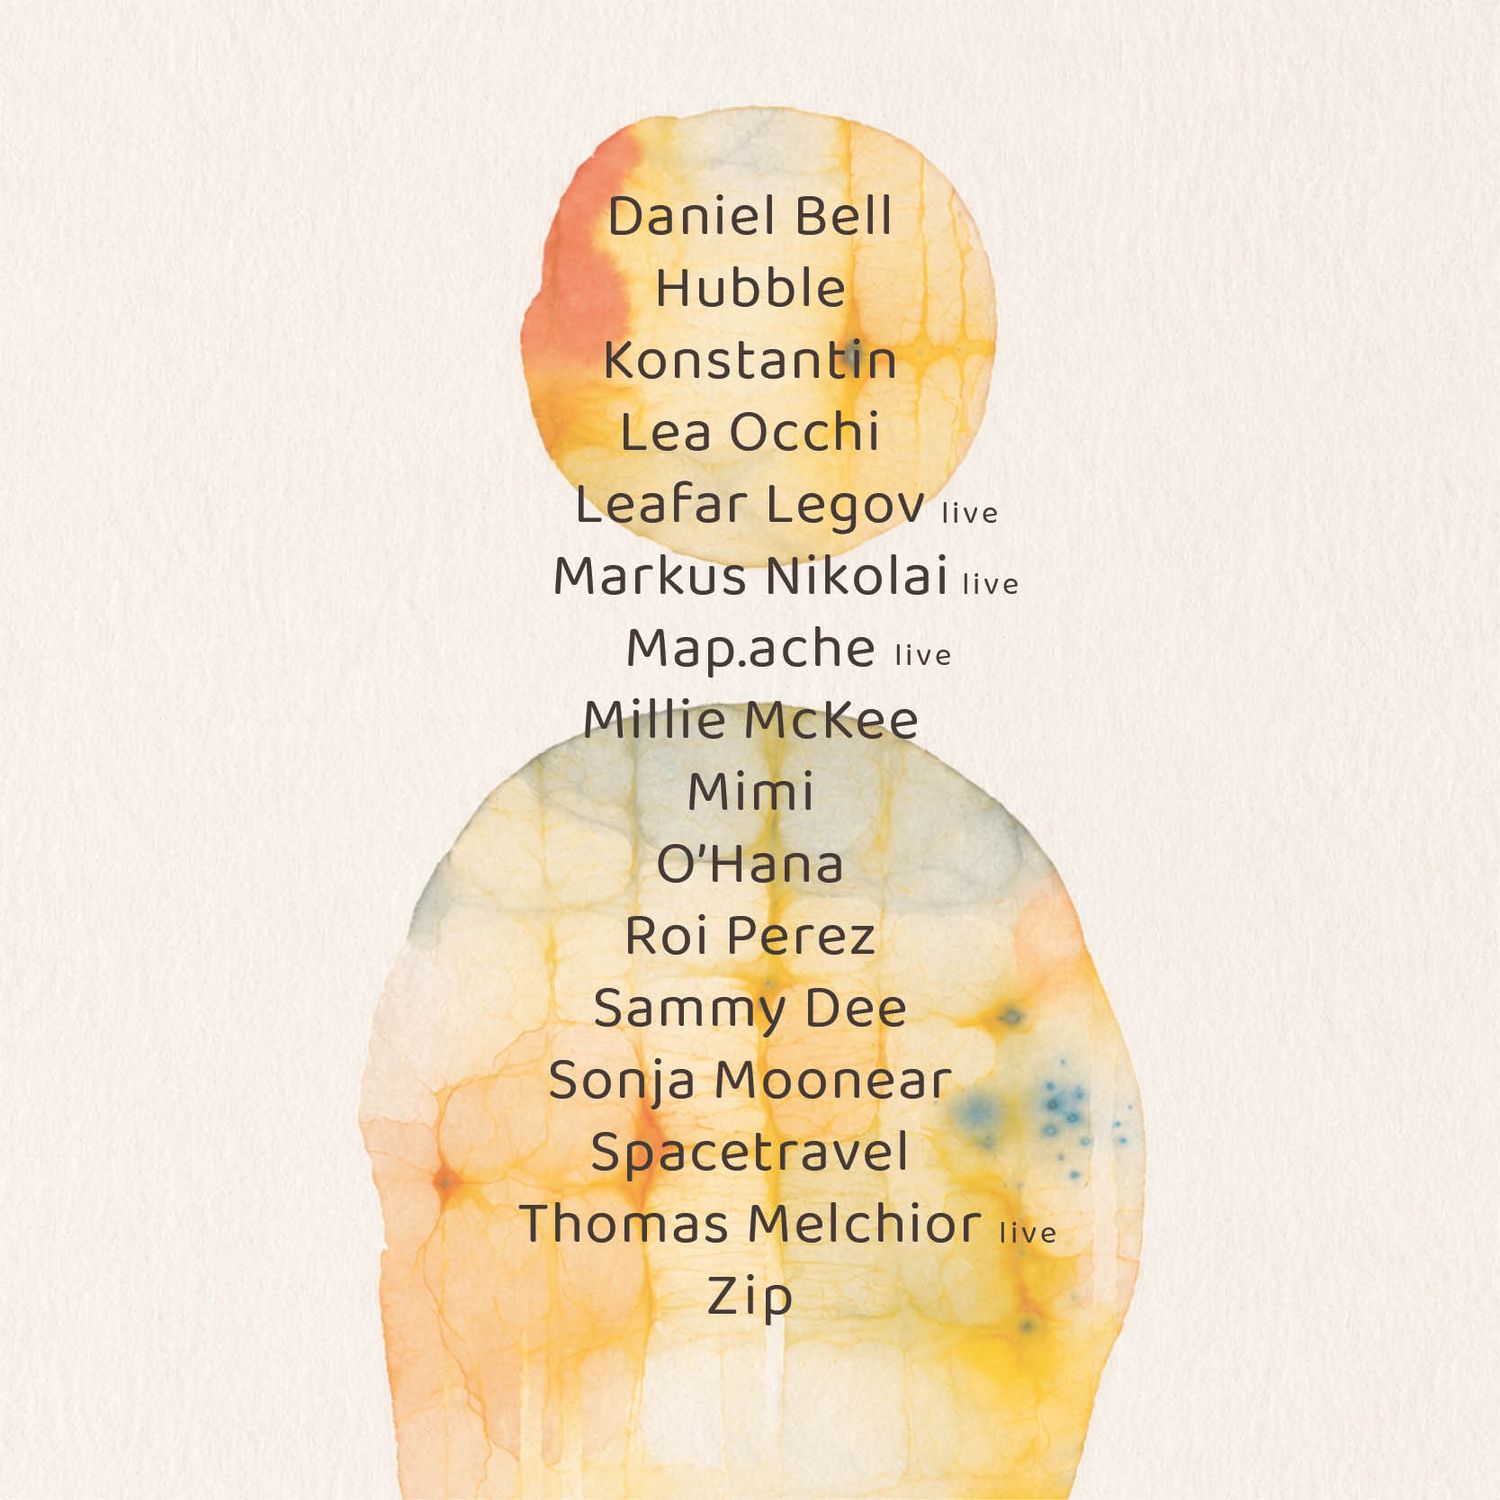 Daniel Bell
Hubble
Konstantin
Lea Occhi
Leafar Legov live
Markus Nikolai live
Map.ache live
Millie McKee
Mimi
O'Hana
Roi Perez
Sammy Dee
Sonja Moonear
Spacetravel
Thomas Melchior live
Zip